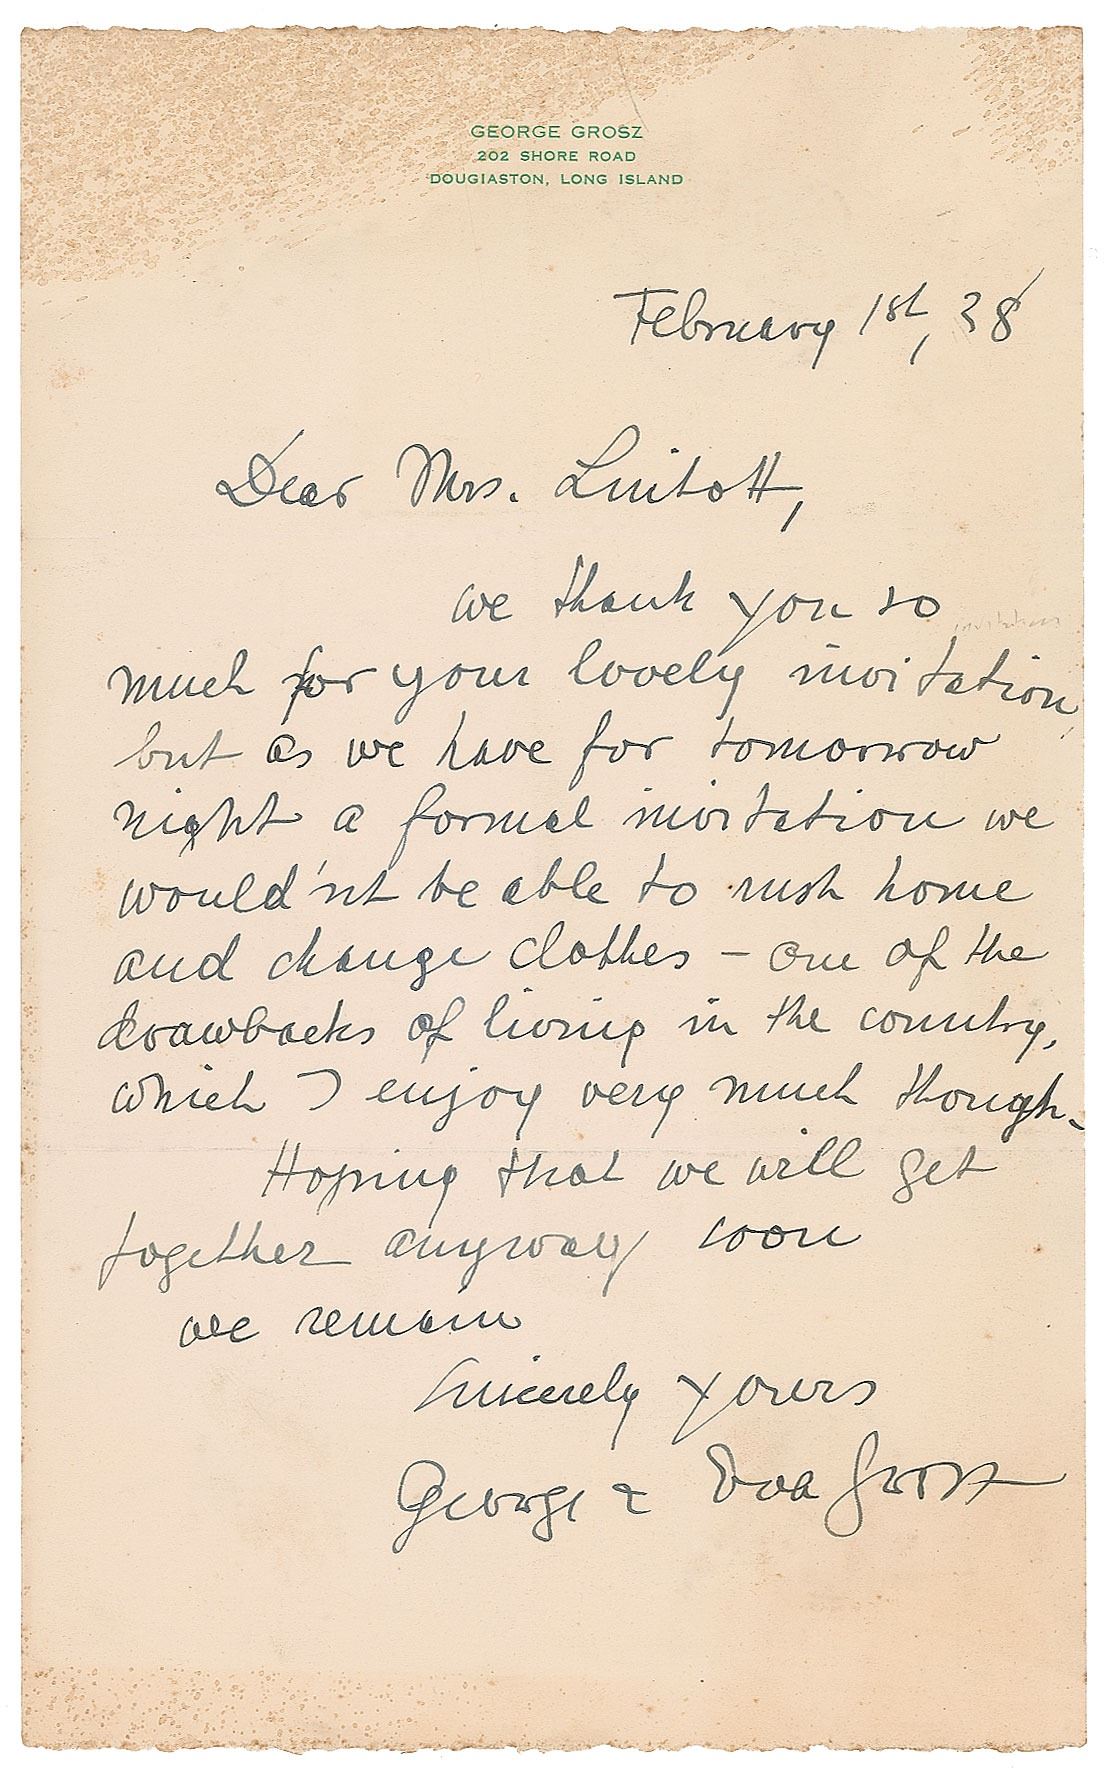 GEORGE GROSZ
202 SHORE ROAD
DOUGIASTON, LONG ISLAND
February 1st, 38
Dear Mrs. Linitott,
we thank you so
invitation
much for your lovely invitation,
but as we have for tomorrow
night a formal invitation we
would'nt be able to rush home
and change clothes – one of the
drawbacks of living in the country,
which I enjoy very much though.
Hoping that we will get
together anyway soon
we remain
Sincerely yours
George & Eva Grosz